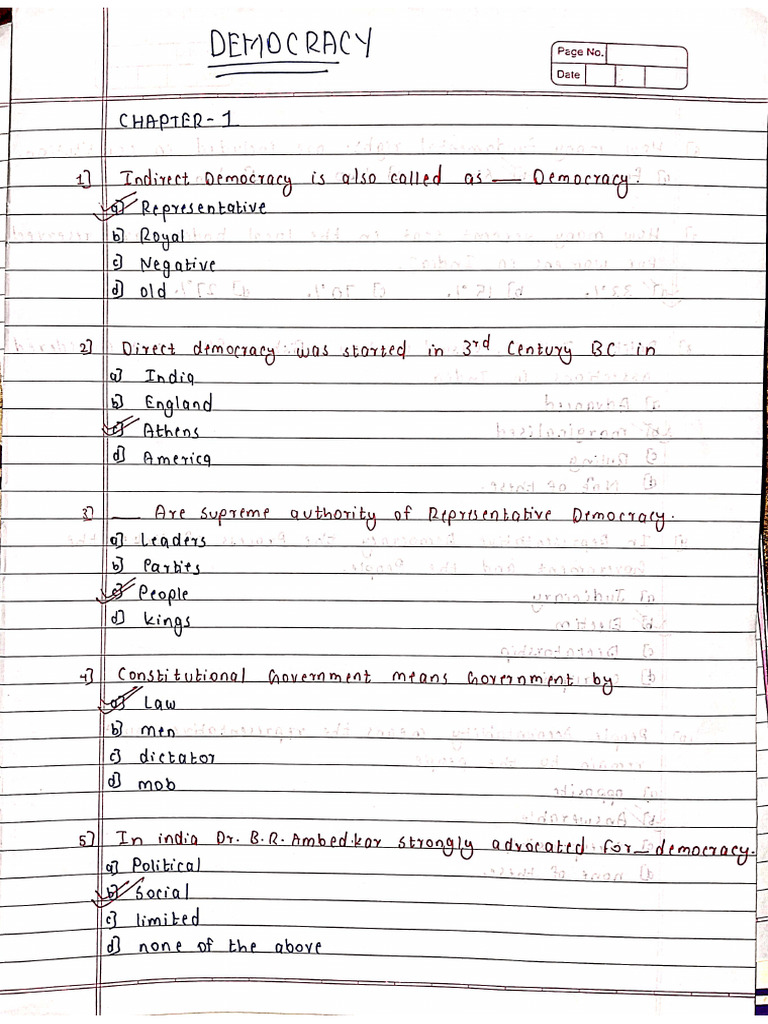 DEMOCRACY
Page No.
Date
CHAPTER-1
1] Indirect Democracy is also called as — Democracy.
a] Representative
b] Royal
c] Negative
d] old
2] Direct democracy was started in 3rd Century BC in
a] India
b] England
c] Athens
d] America
3] — Are supreme authority of Representative Democracy.
a] Leaders
b] Parties
c] People
d] kings
4] Constitutional Government means Government by
a] Law
b] men
c] dictator
d] mob
5] In india Dr. B.R. Ambedkar strongly advocated for — democracy.
a] Political
b] Social
c] limited
d] none of the above